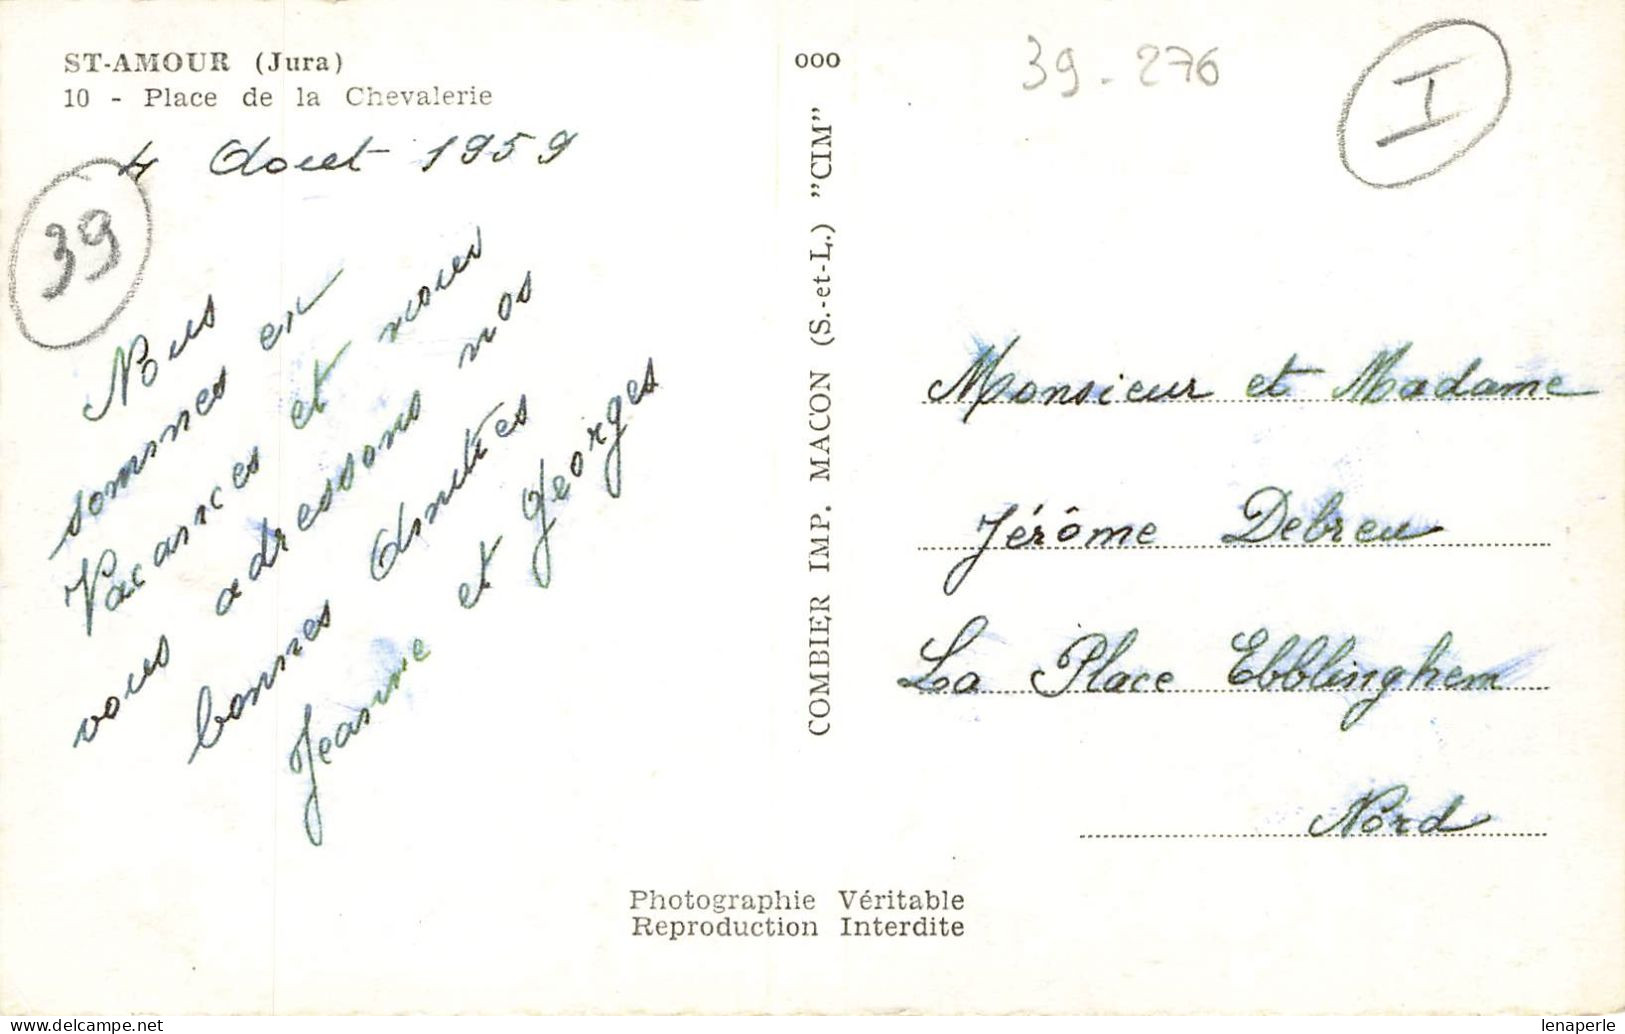 ST-AMOUR (Jura)
10 - Place de la Chevalerie
4 Aout 1959
39
Nous
sommes en
Vacances et nous
vous adressons nos
bonnes Amitiés
Jeanine et Georges
ooo
COMBIER IMP. MACON (S.-et-L.) "CIM"
39-276
I
Monsieur et Madame
Jérôme Debreu
La Place Ebblinghem
Nord
Photographie Véritable
Reproduction Interdite
delcampe.net
lenaperle